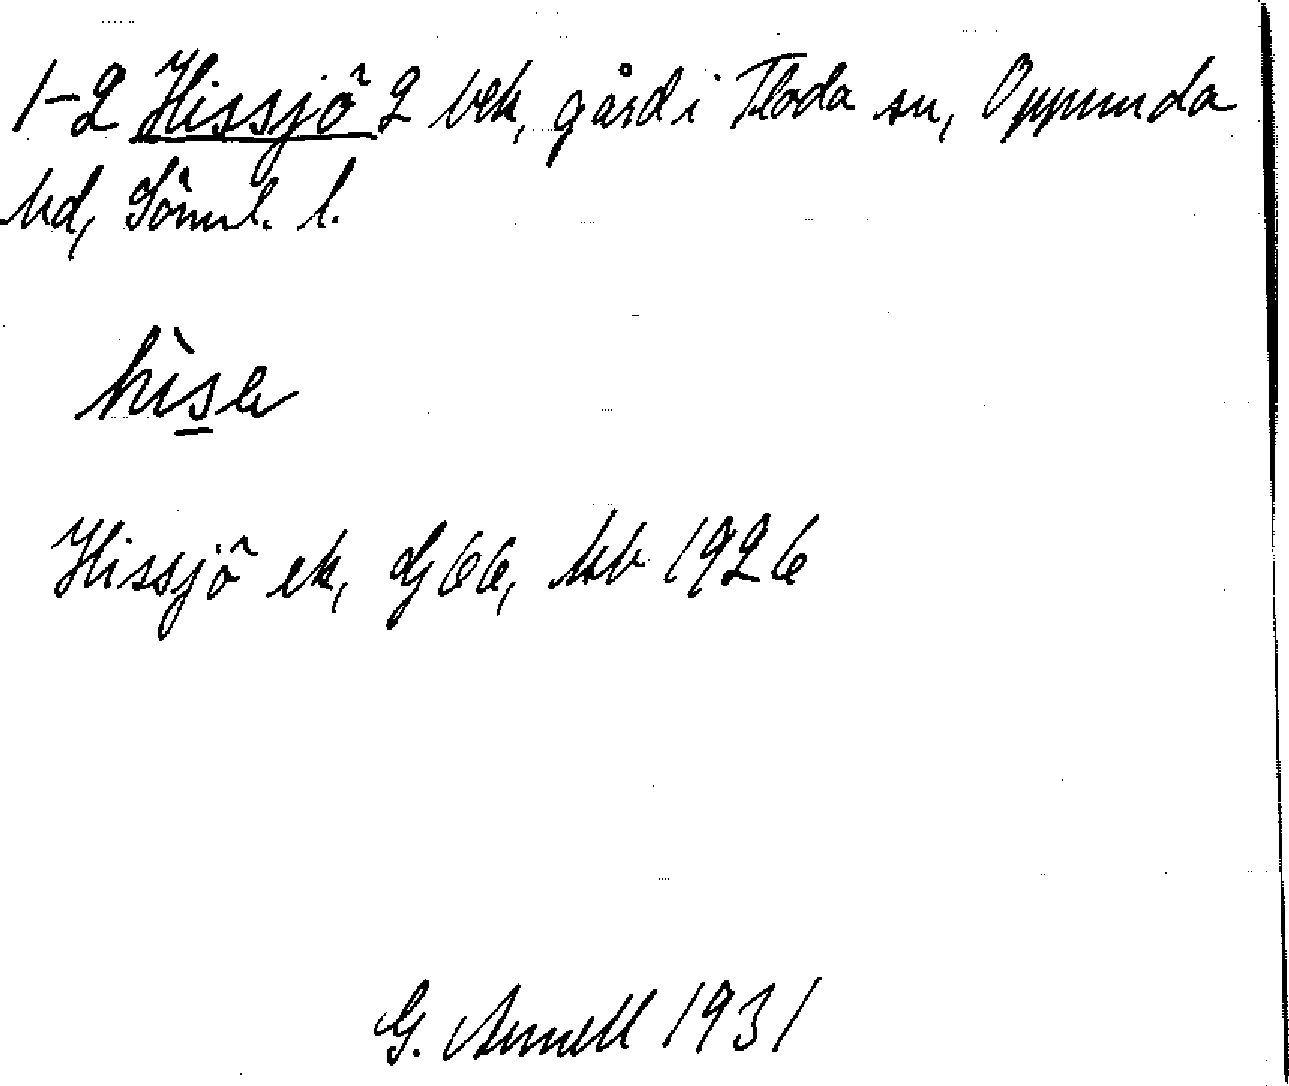 1-2 Hissjö 2 bek, gård i Floda sn, Oppunda
hd, Söml. l.
hìse
Hissjö ek, Gj 66, kb 1926
G. Arnell 1931